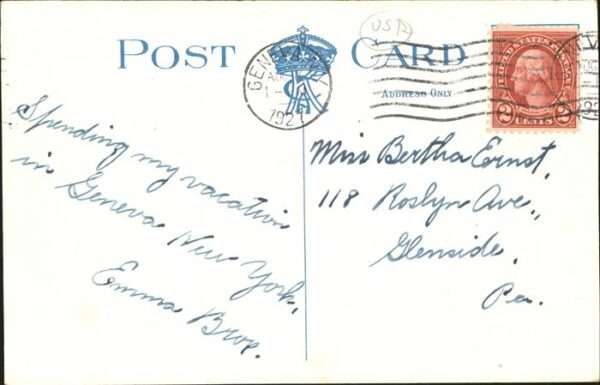 POST CARD
USA
GENEVA
192
ADDRESS ONLY
UNITED STATES POSTAGE
2 CENTS 2
Spending my vacation
in Geneva New York.
Emma
Miss Bertha Ernst,
118 Roslyn Ave.,
Glenside,
Pa.